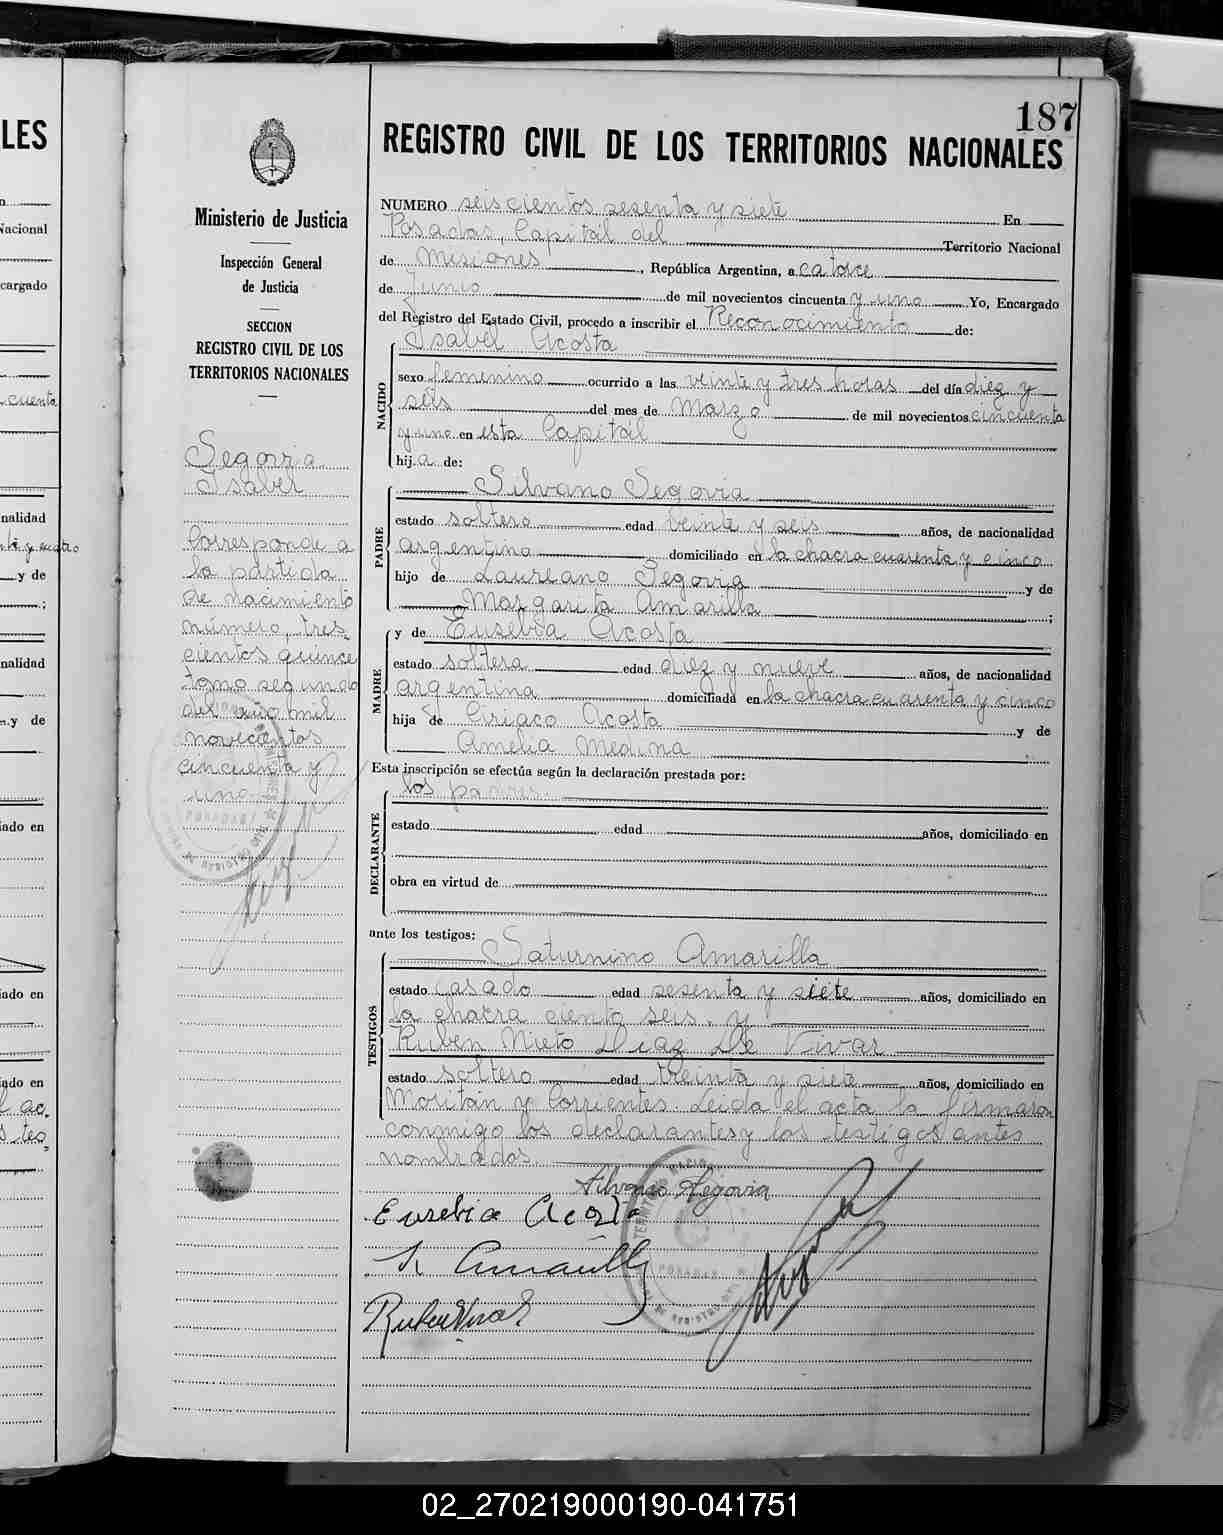 187
REGISTRO CIVIL DE LOS TERRITORIOS NACIONALES
Ministerio de Justicia
Inspección General
de Justicia
SECCION
REGISTRO CIVIL DE LOS
TERRITORIOS NACIONALES
Segovia
Isabel
Corresponde a
la partida
de nacimiento
número, tres_
cientos quince
tomo segundo
del año mil
novecientos
cincuenta y
uno
NUMERO seiscientos sesenta y siete En
Posadas, Capital del Territorio Nacional
de Misiones, República Argentina, a catorce
de Junio de mil novecientos cincuenta y uno Yo, Encargado
del Registro del Estado Civil, procedo a inscribir el Reconocimiento de:
Isabel Acosta
NACIDO
sexo femenino ocurrido a las veinte y tres horas del día diez y
seis del mes de Marzo de mil novecientos cincuenta
y uno en esta Capital
hija de:
PADRE
Silvano Segovia
estado soltero edad veinte y seis años, de nacionalidad
argentina domiciliado en la chacra cuarenta y cinco
hijo de Laureano Segovia y de
Margarita Amarilla;
MADRE
y de Eusebia Acosta
estado soltera edad diez y nueve años, de nacionalidad
argentina domiciliada en la chacra cuarenta y cinco
hija de Ciriaco Acosta y de
Amelia Medina
Esta inscripción se efectúa según la declaración prestada por:
DECLARANTE
los padres.
estado edad años, domiciliado en
obra en virtud de
ante los testigos:
TESTIGOS
Saturnino Amarilla
estado casado edad sesenta y siete años, domiciliado en
la chacra ciento seis. y
Ruben Nieto Diaz De Vivar
estado soltero edad treinta y siete años, domiciliado en
Moritán y Corrientes. Leida el acta la firmaron
conmigo los declarantes y los testigos antes
nombrados.
Silvano Segovia
Eusebia Acosta
Amarilla
Ruben Vivar
POSADAS
02_270219000190-041751